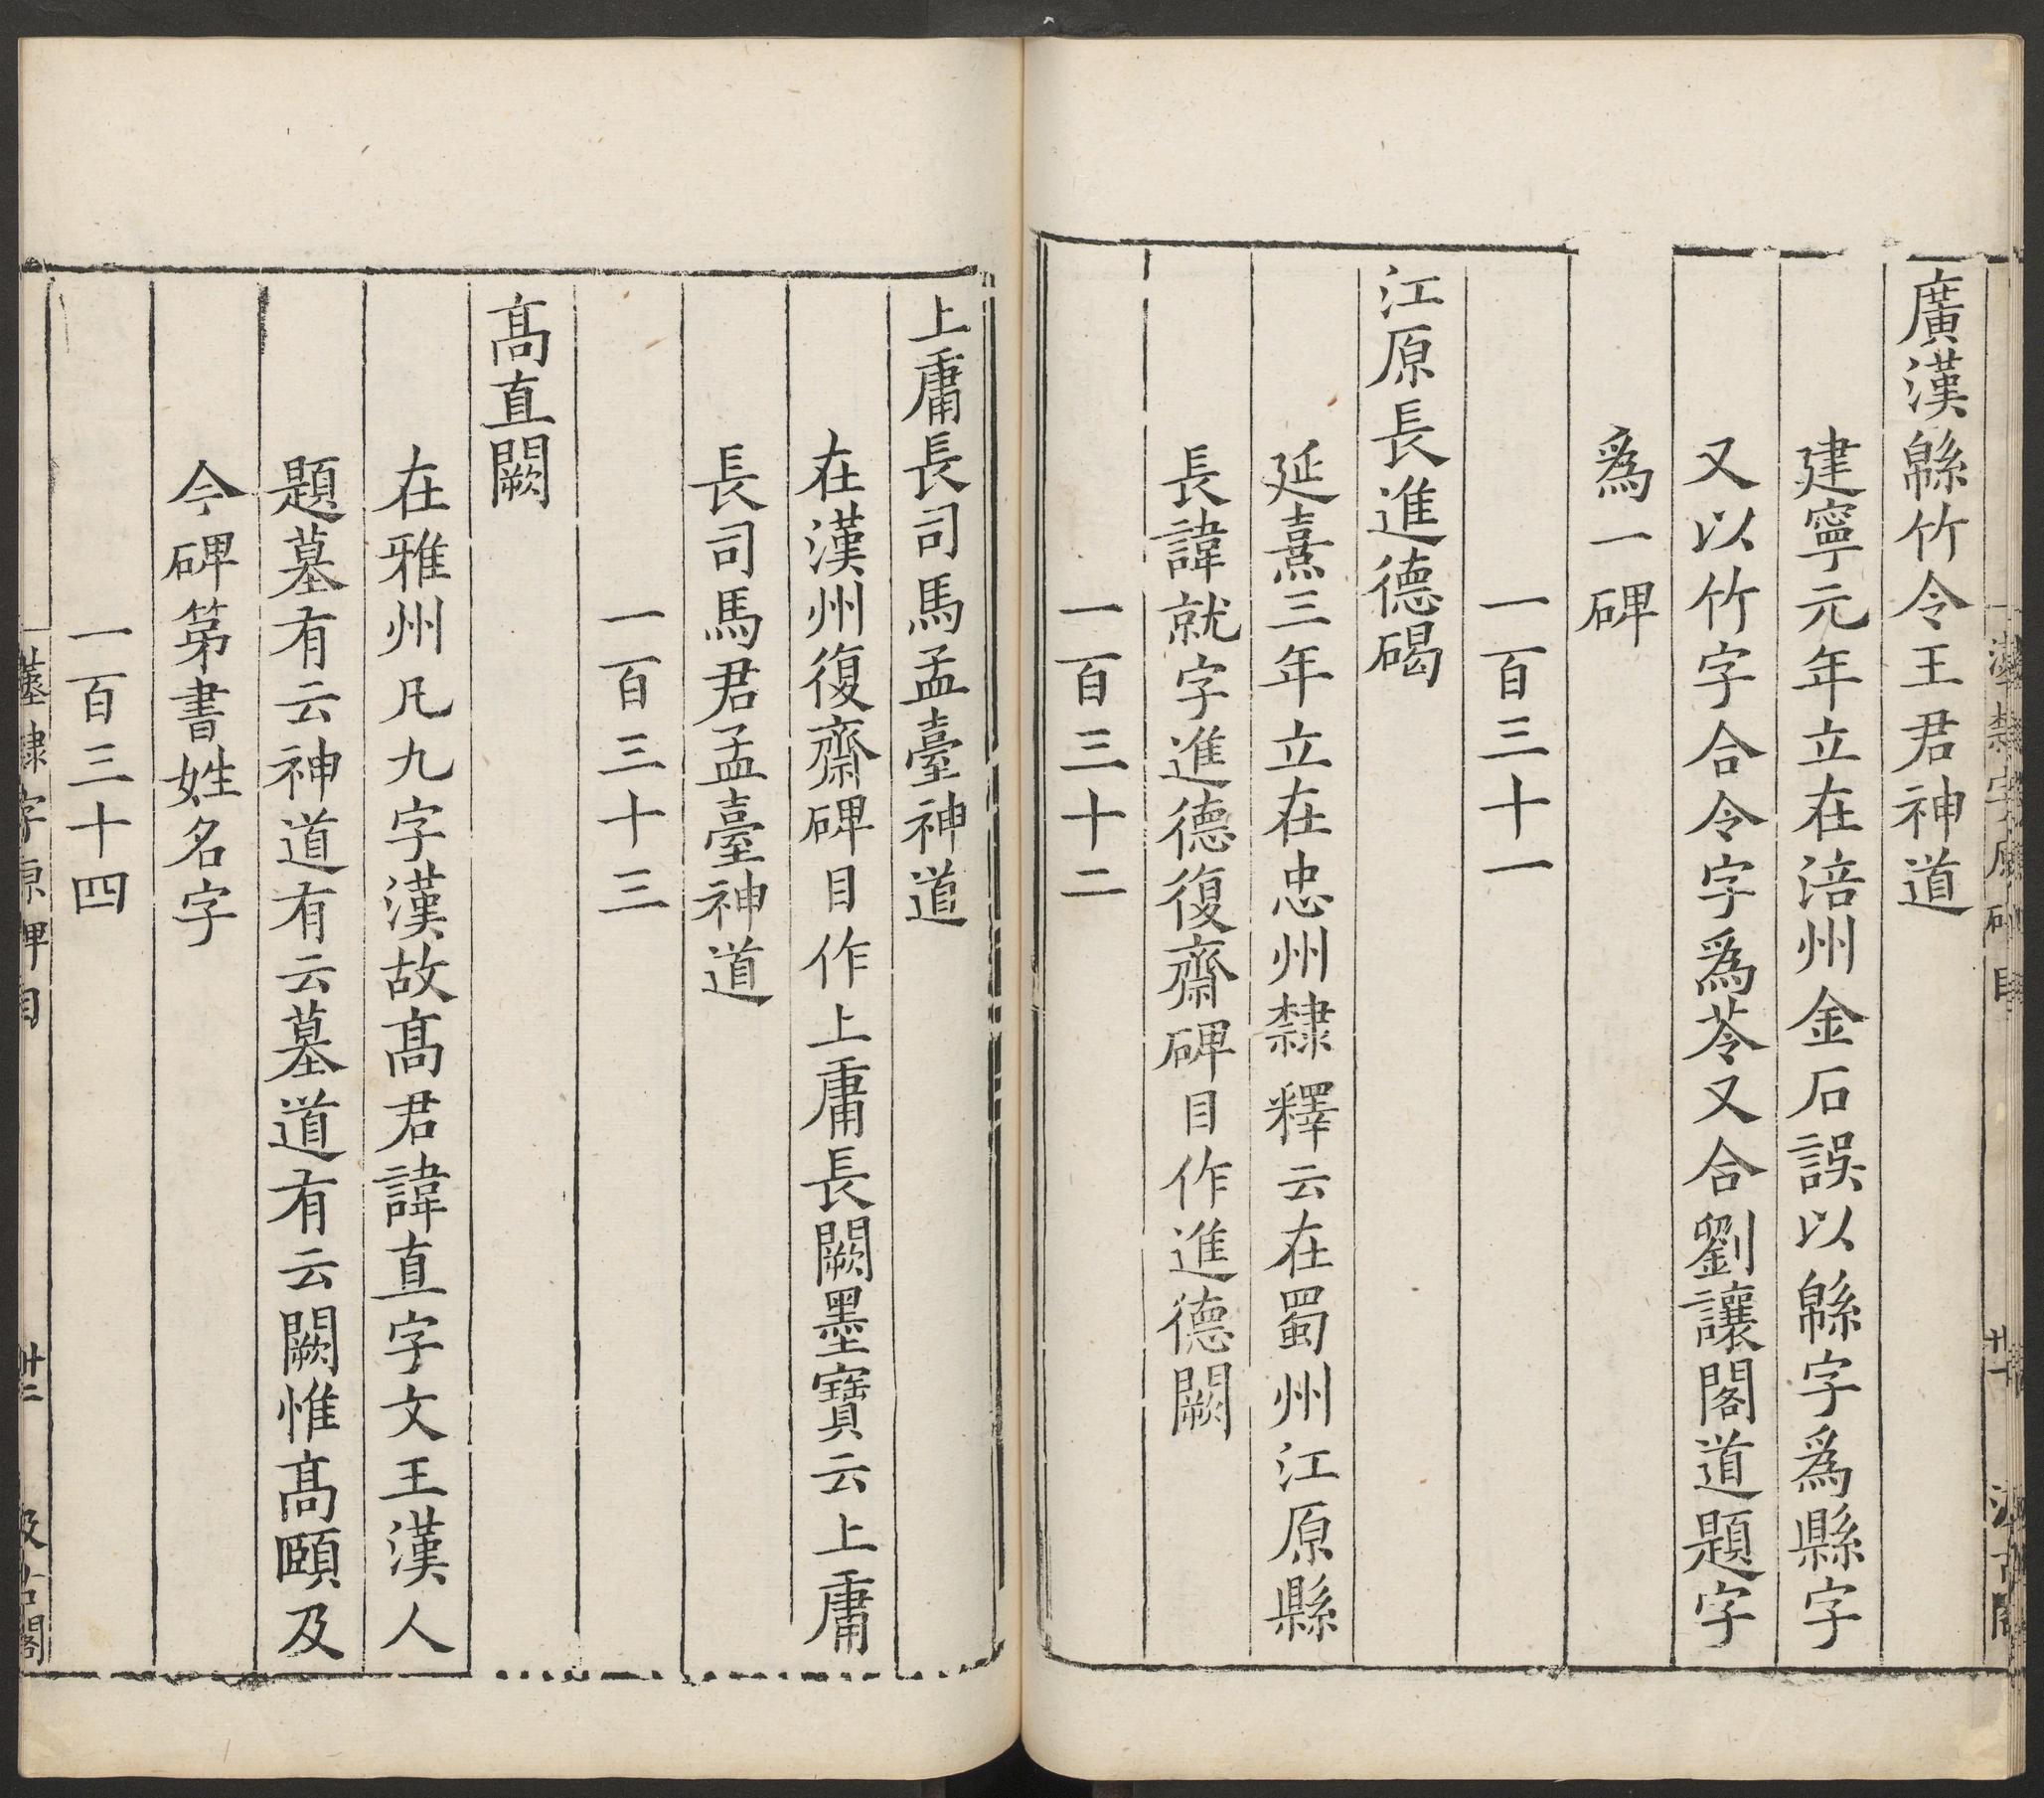 廣漢緜竹令王君神道
建寧元年立在涪州金石誤以緜字爲縣字
又以竹字合令字爲苓又合劉讓閣道題字
爲一碑
一百三十一
江原長進德碣
延熹三年立在忠州隸釋云在蜀州江原縣
長諱就字進德復齋碑目作進德闕
一百三十二
上庸長司馬孟臺神道
在漢州復齋碑目作上庸長闕墨寶云上庸
長司馬君孟臺神道
一百三十三
髙直闕
在雅州凡九字漢故髙君諱直字文王漢人
題墓有云神道有云墓道有云闕惟髙頤及
今碑第書姓名字
一百三十四